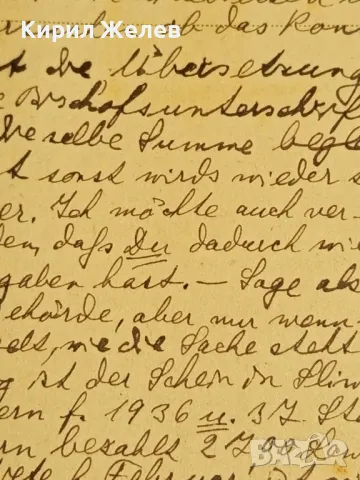 Кирил Желев
das Kon
t die Übersetzung
e Bischofsunterschrif
dieselbe Summe begl
t sonst wirds wieder s
er. Ich möchte auch ver-
den, daß Du dadurch wie
gaben hast. – Sage als
ehörde, aber nur wenn
els, wie die Sache steht
g ist der Schein in Sliw
ern f. 1936 u. 37. St
rn bezahlt 2700 Law
bazar.bg